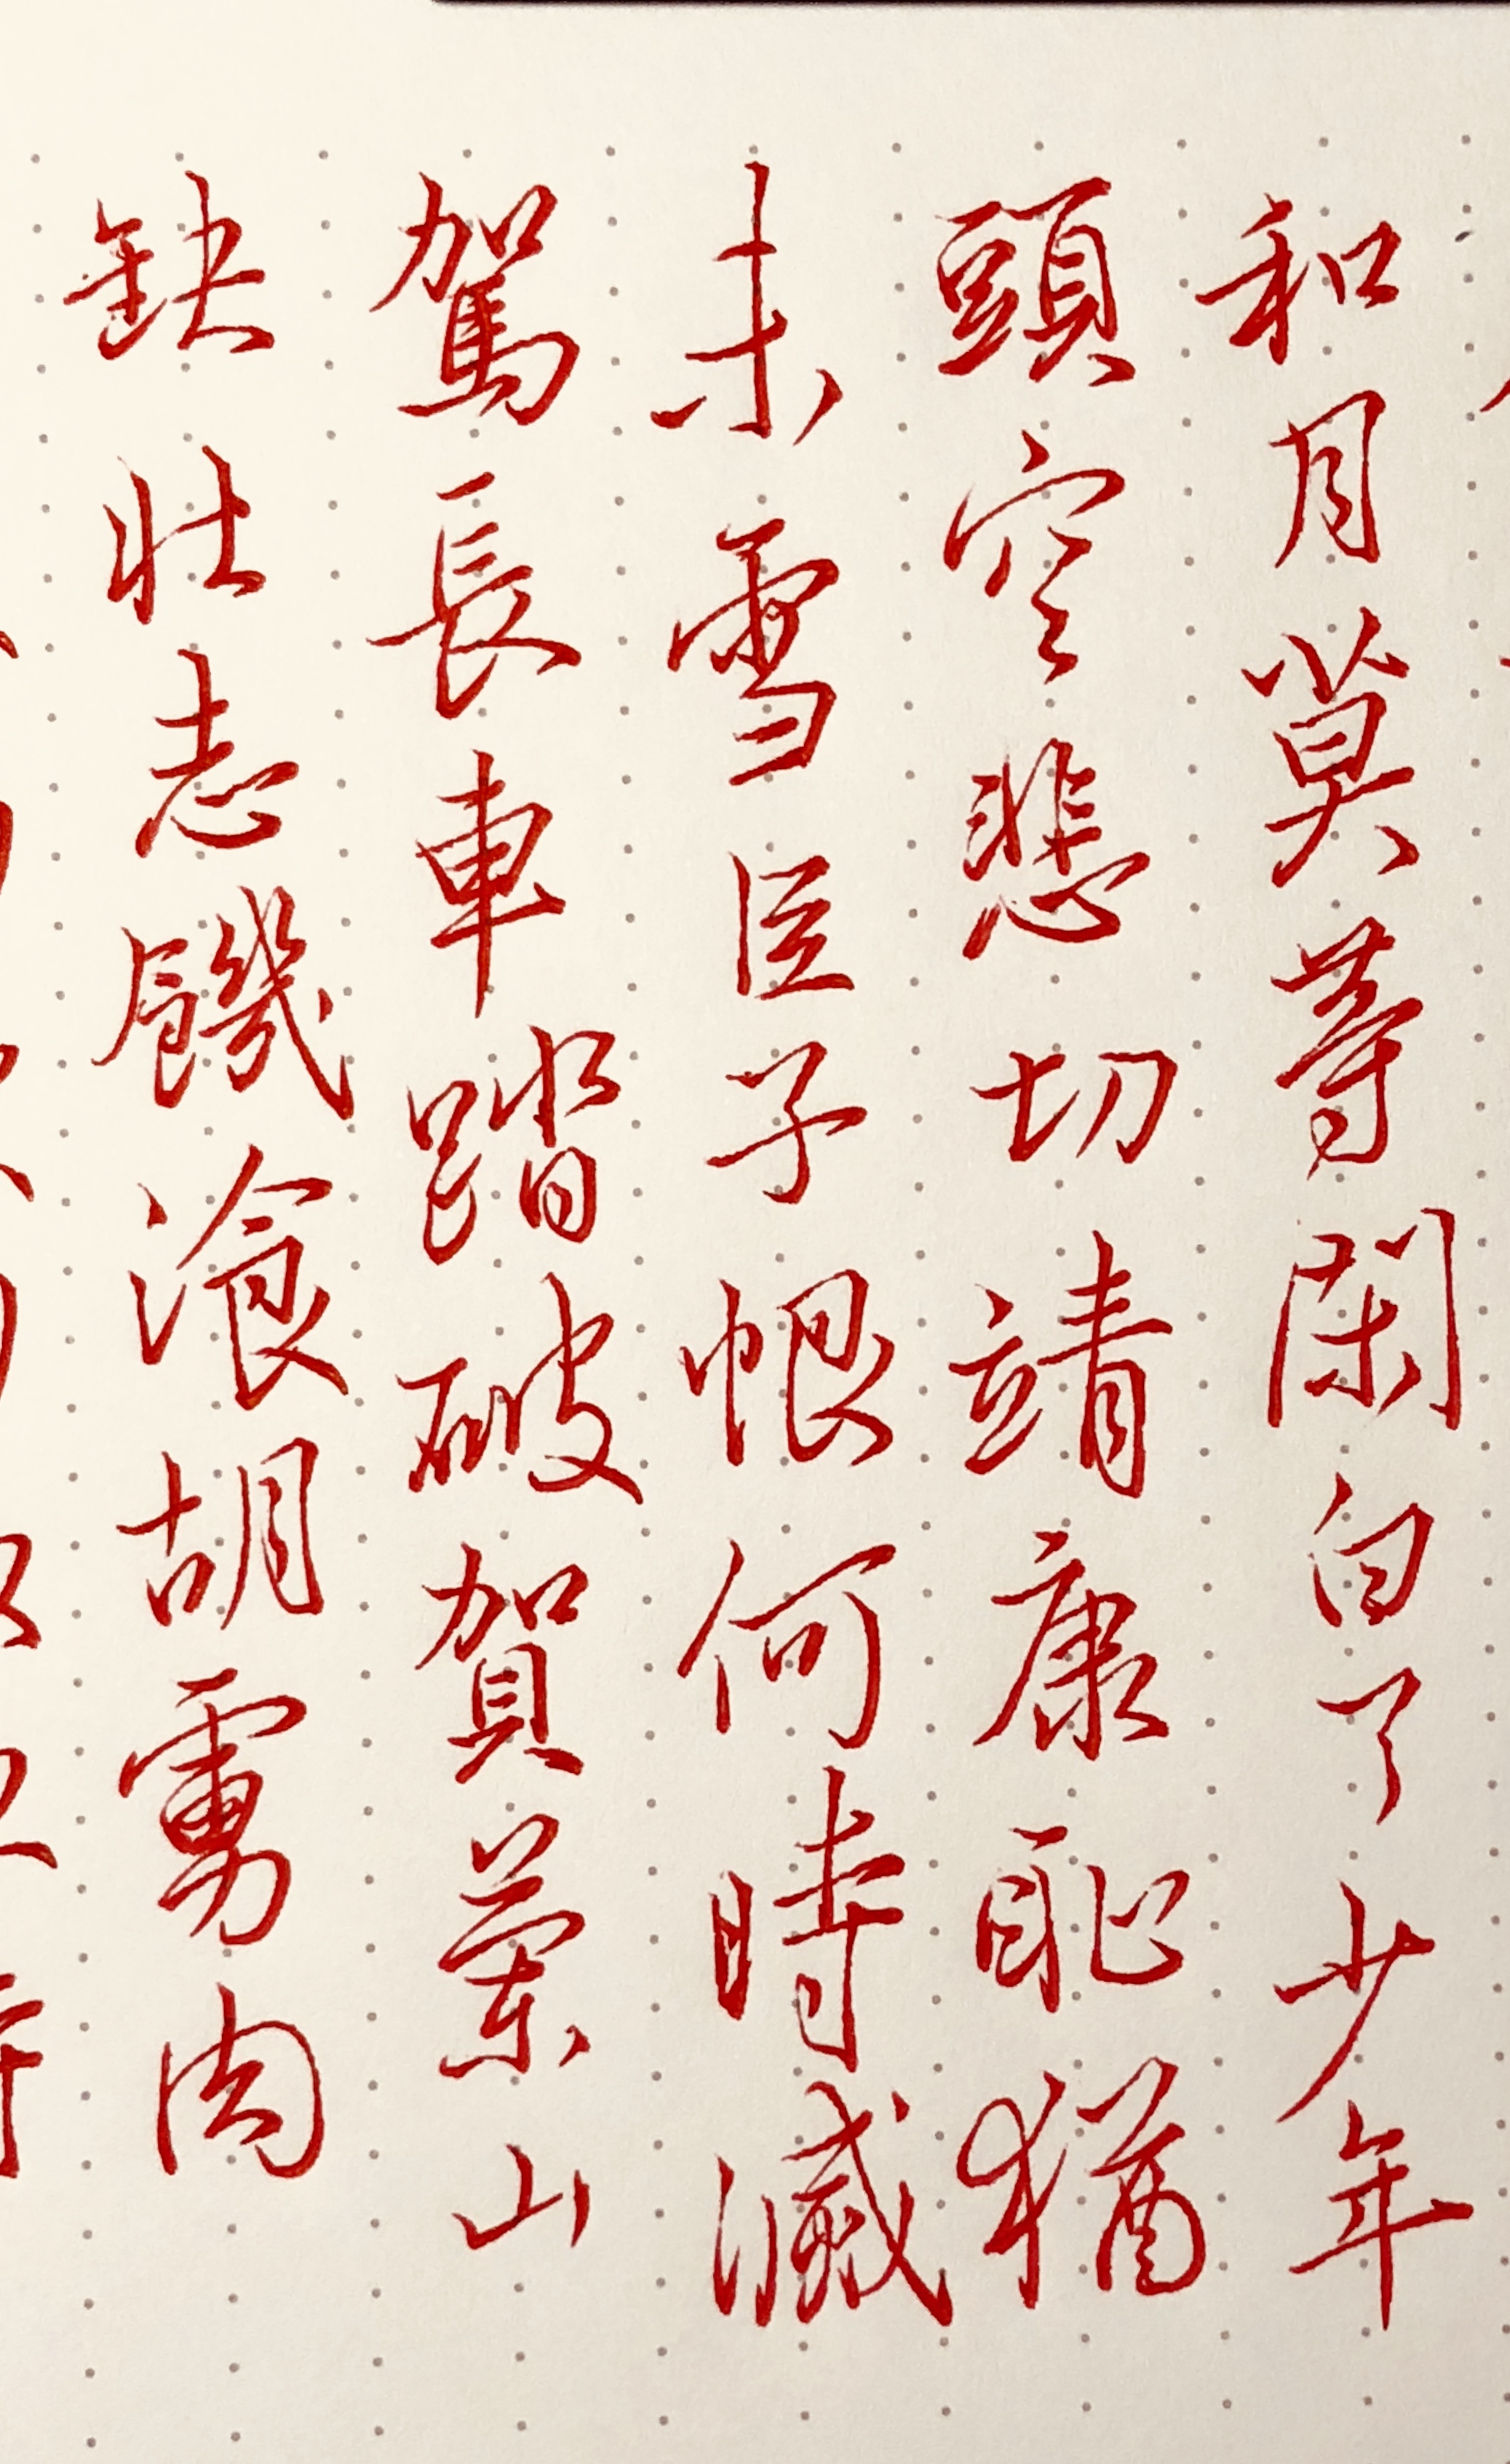 和月莫等閑白了少年
頭空悲切靖康恥猶
未雪臣子恨何時滅
駕長車踏破賀蘭山
缺壯志饑湌胡虜肉